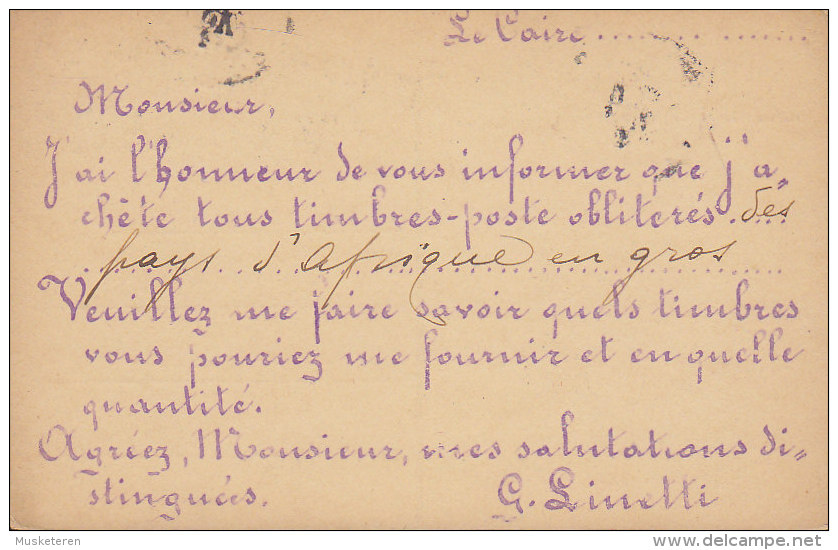 Le Caire ........ .......
Monsieur,
J'ai l'honneur de vous informer que j'a-
chète tous timbres-poste oblitérés. des
pays d'Afrique en gros
Veuillez me faire savoir quels timbres
vous pouriez me fournir et en quelle
quantité.
Agréez, Monsieur, mes salutations di-
stinguées. G. Linetti
Musketeren
delcampe.net